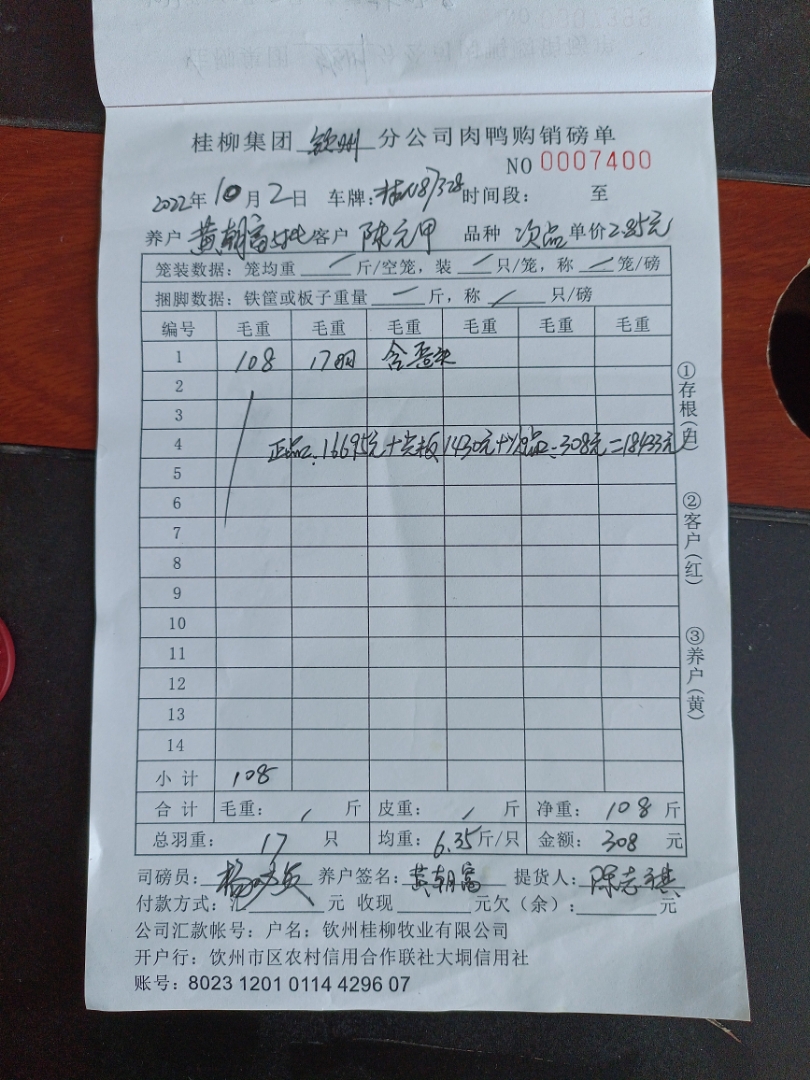 桂柳集团 钦州 分公司肉鸭购销磅单
NO 0007400
2022年 10月 2日 车牌: 时间段: 至
养户 黄朝富 客户 陈元甲 品种 次品 单价2.85元
笼装数据: 笼均重 斤/空笼, 装 只/笼, 称 笼/磅
捆脚数据: 铁筐或板子重量 斤, 称 只/磅
编号 毛重 毛重 毛重 毛重 毛重 毛重
1 108 17羽
2
3
4 正品: 16695元+ 板 1430元+次品: 308元=18433元
5
6
7
8
9
10
11
12
13
14
小计 108
合计 毛重: 斤 皮重: 斤 净重: 108 斤
总羽重: 17 只 均重: 6.35斤/只 金额: 308 元
司磅员: 杨 养户签名: 黄朝富 提货人: 陈志
付款方式: 汇 元 收现 元欠(余): 元
公司汇款帐号: 户名: 钦州桂柳牧业有限公司
开户行: 钦州市区农村信用合作联社大垌信用社
账号: 8023 1201 0114 4296 07
①存根(白)
②客户(红)
③养户(黄)